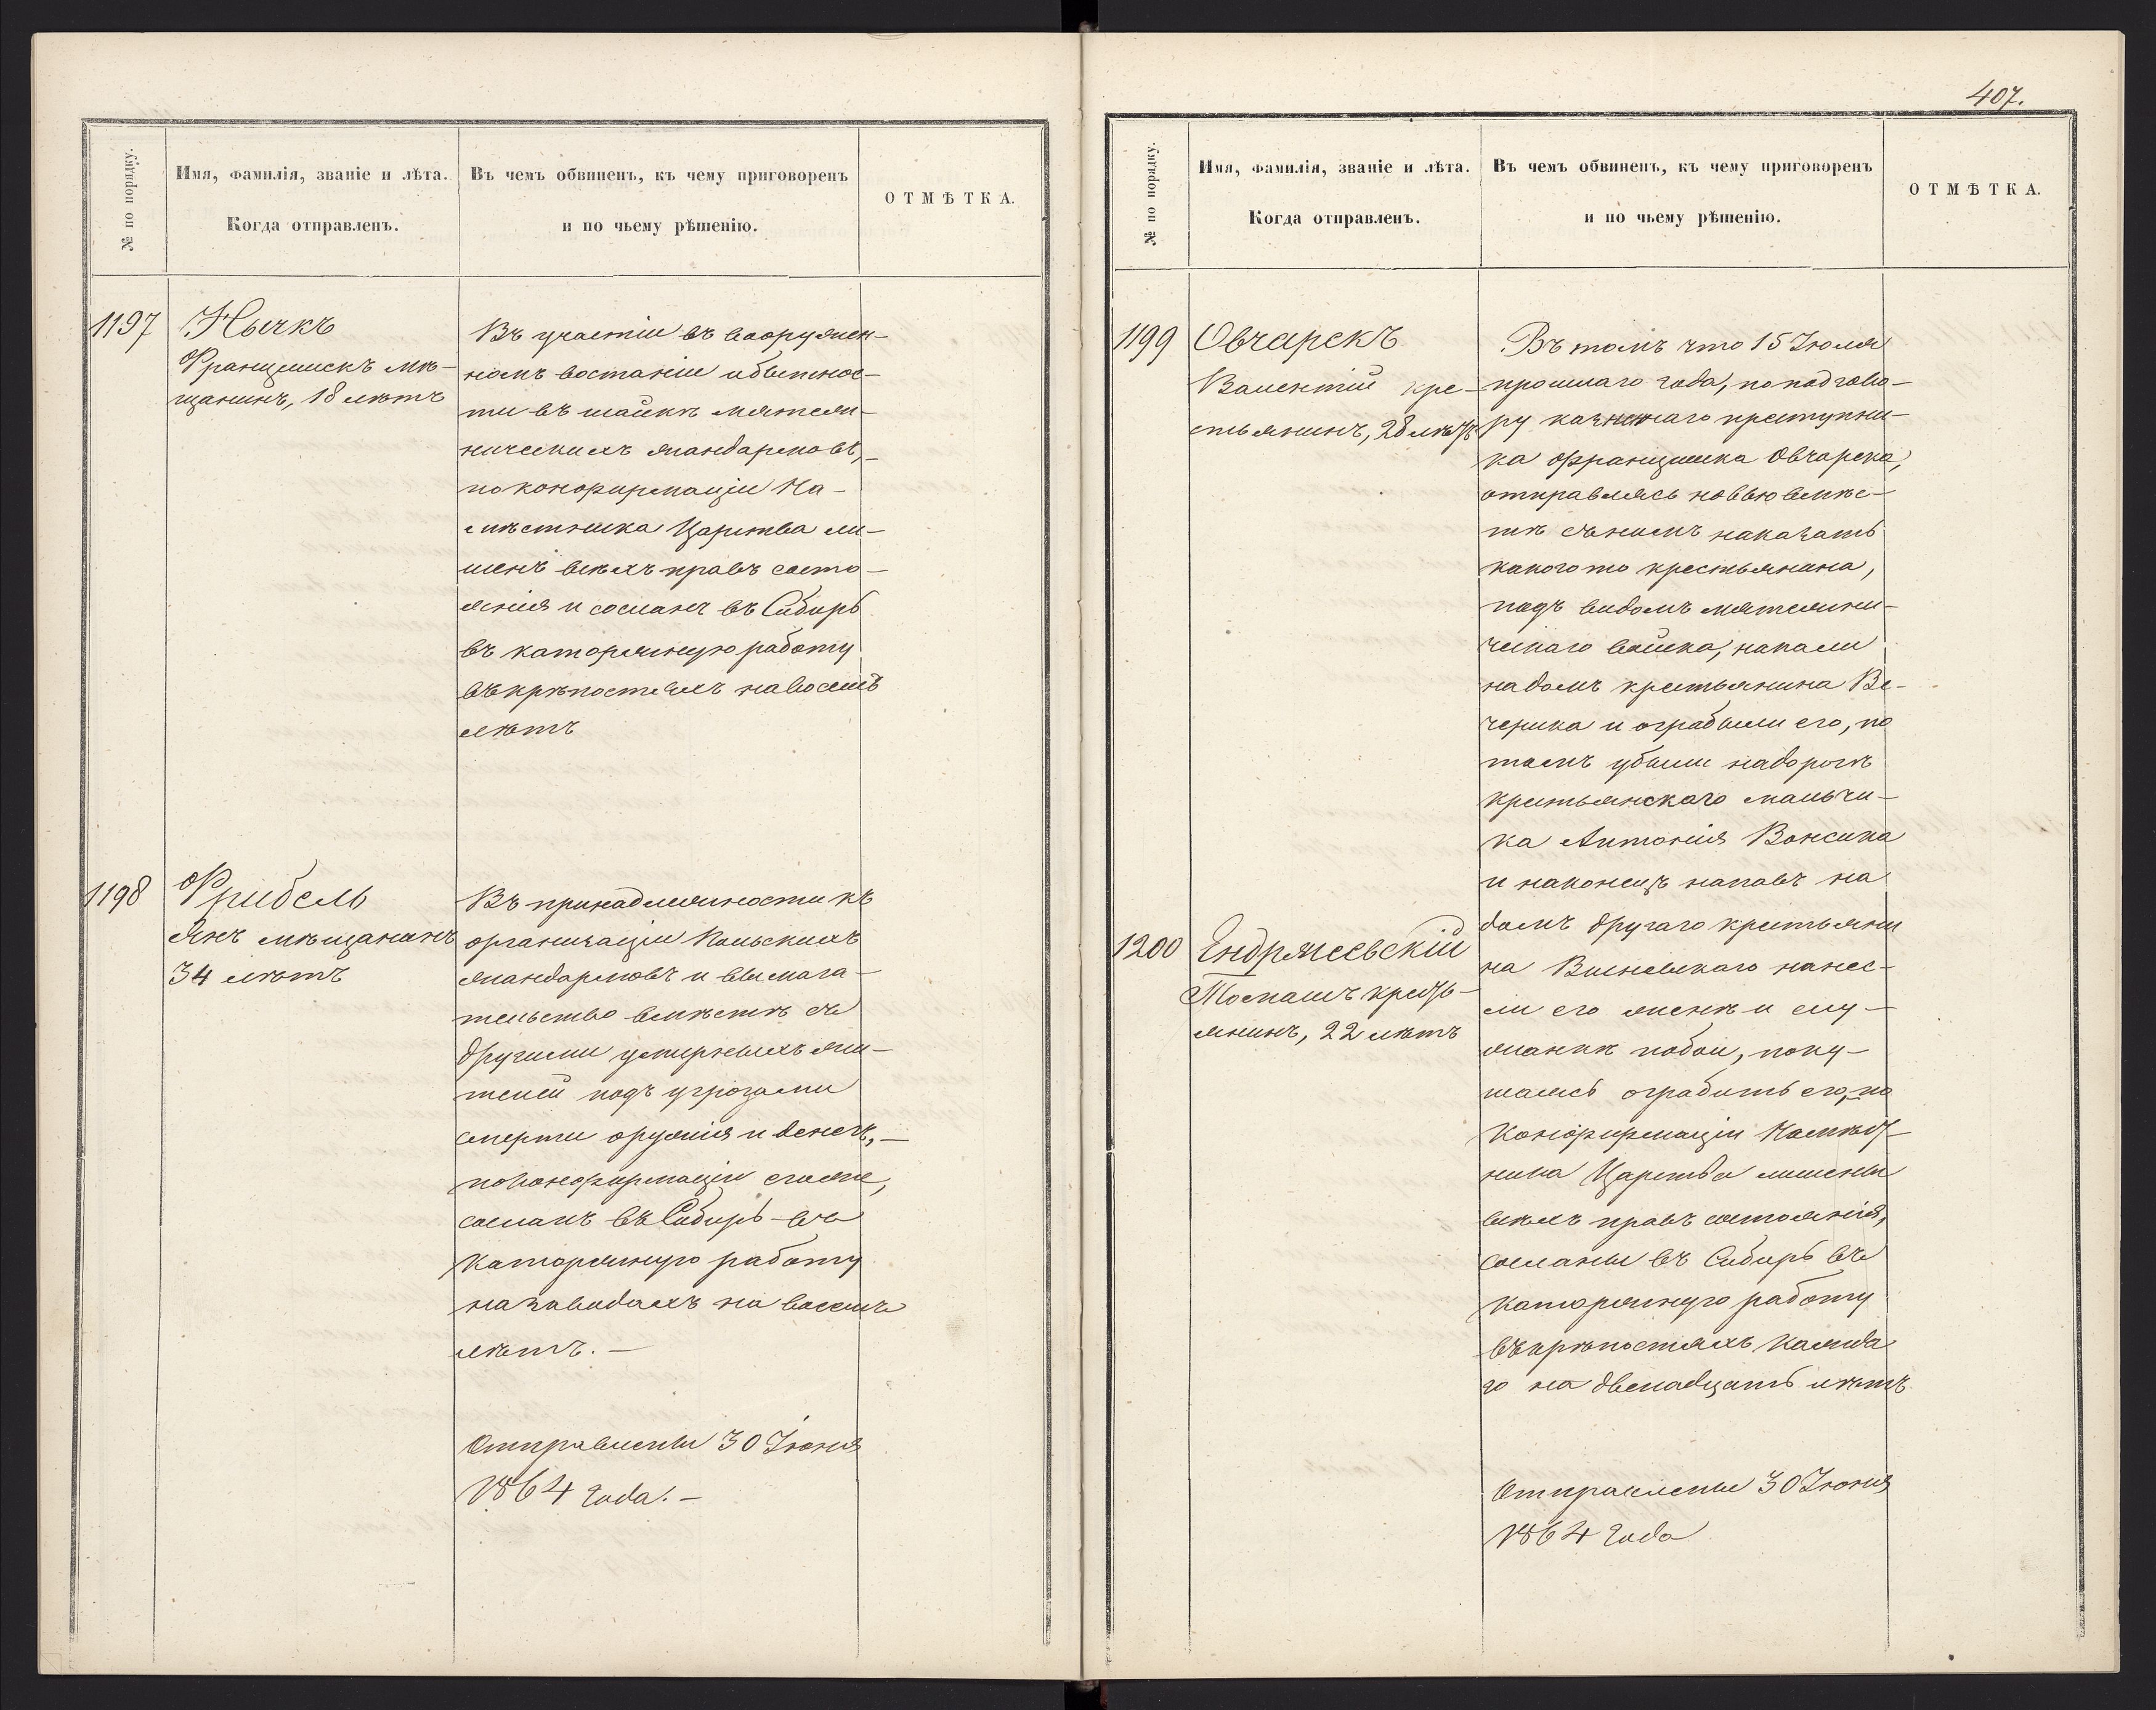 № по порядку.
Имя, фамилія, званіе и лѣта.
Когда отправленъ.
Въ чемъ обвиненъ, къ чему приговоренъ
и по чьему рѣшенію.
ОТМѢТКА.
1197
Нычкъ
Францишекъ мѣ-
щанинъ, 18 лѣтъ
Въ участіи въ вооружен-
номъ востаніи и бытнос-
ти въ шайкѣ мятеж-
ническихъ жандармовъ,-
по конфирмаціи На-
мѣстника Царства ли-
шенъ всѣхъ правъ состо-
янія и сосланъ въ Сибирь
въ каторжную работу
въ крѣпостяхъ на восемь
лѣтъ
1198
Фрибель
Янъ мѣщанинъ
34 лѣтъ
Въ принадлежности къ
организаціи Польскихъ
жандармовъ и вымога-
тельство вмѣстѣ съ
другими у мирныхъ жи-
телей подъ угрозами
смерти оружія и денегъ,-
по конфирмаціи егоже,
сосланъ въ Сибирь въ
каторжную работу
на заводахъ на восемь
лѣтъ.-
Отправлены 30 Іюня
1864 года.-
407.
№ по порядку.
Имя, фамилія, званіе и лѣта.
Когда отправленъ.
Въ чемъ обвиненъ, къ чему приговоренъ
и по чьему рѣшенію.
ОТМѢТКА.
1199
Овчарекъ
Валентій кре-
стьянинъ, 28 лѣтъ
Въ томъ что 15 Іюля
прошлаго года, по подгово-
ру казненнаго преступни-
ка Францишка Овчарека,
отправлясь новью вмѣс-
тѣ съ нимъ наказать
какого то крестьянина,
подъ видомъ мятежни-
ческаго войска, напали
на домъ крестьянина Ве-
черика и ограбили его, по
томъ убили на дорогѣ
крестьянского мальчи-
ка Антонія Вонсика
и наконецъ напавъ на
домъ другаго крестьяни
на Висневскаго нанес-
ли его женѣ и слу-
жанкѣ побои, поку-
шаясь ограбить его,-по
конфирмаціи Намѣст-
ника Царства лишены
всѣхъ правъ состоянія,
сосланы въ Сибирь въ
каторжную работу
въ крѣпостяхъ кажда
го на двенадцать лѣтъ
1200
Ендржеевскій
Томашъ кресть-
янинъ, 22 лѣтъ
Отправлены 30 Іюня
1864 года